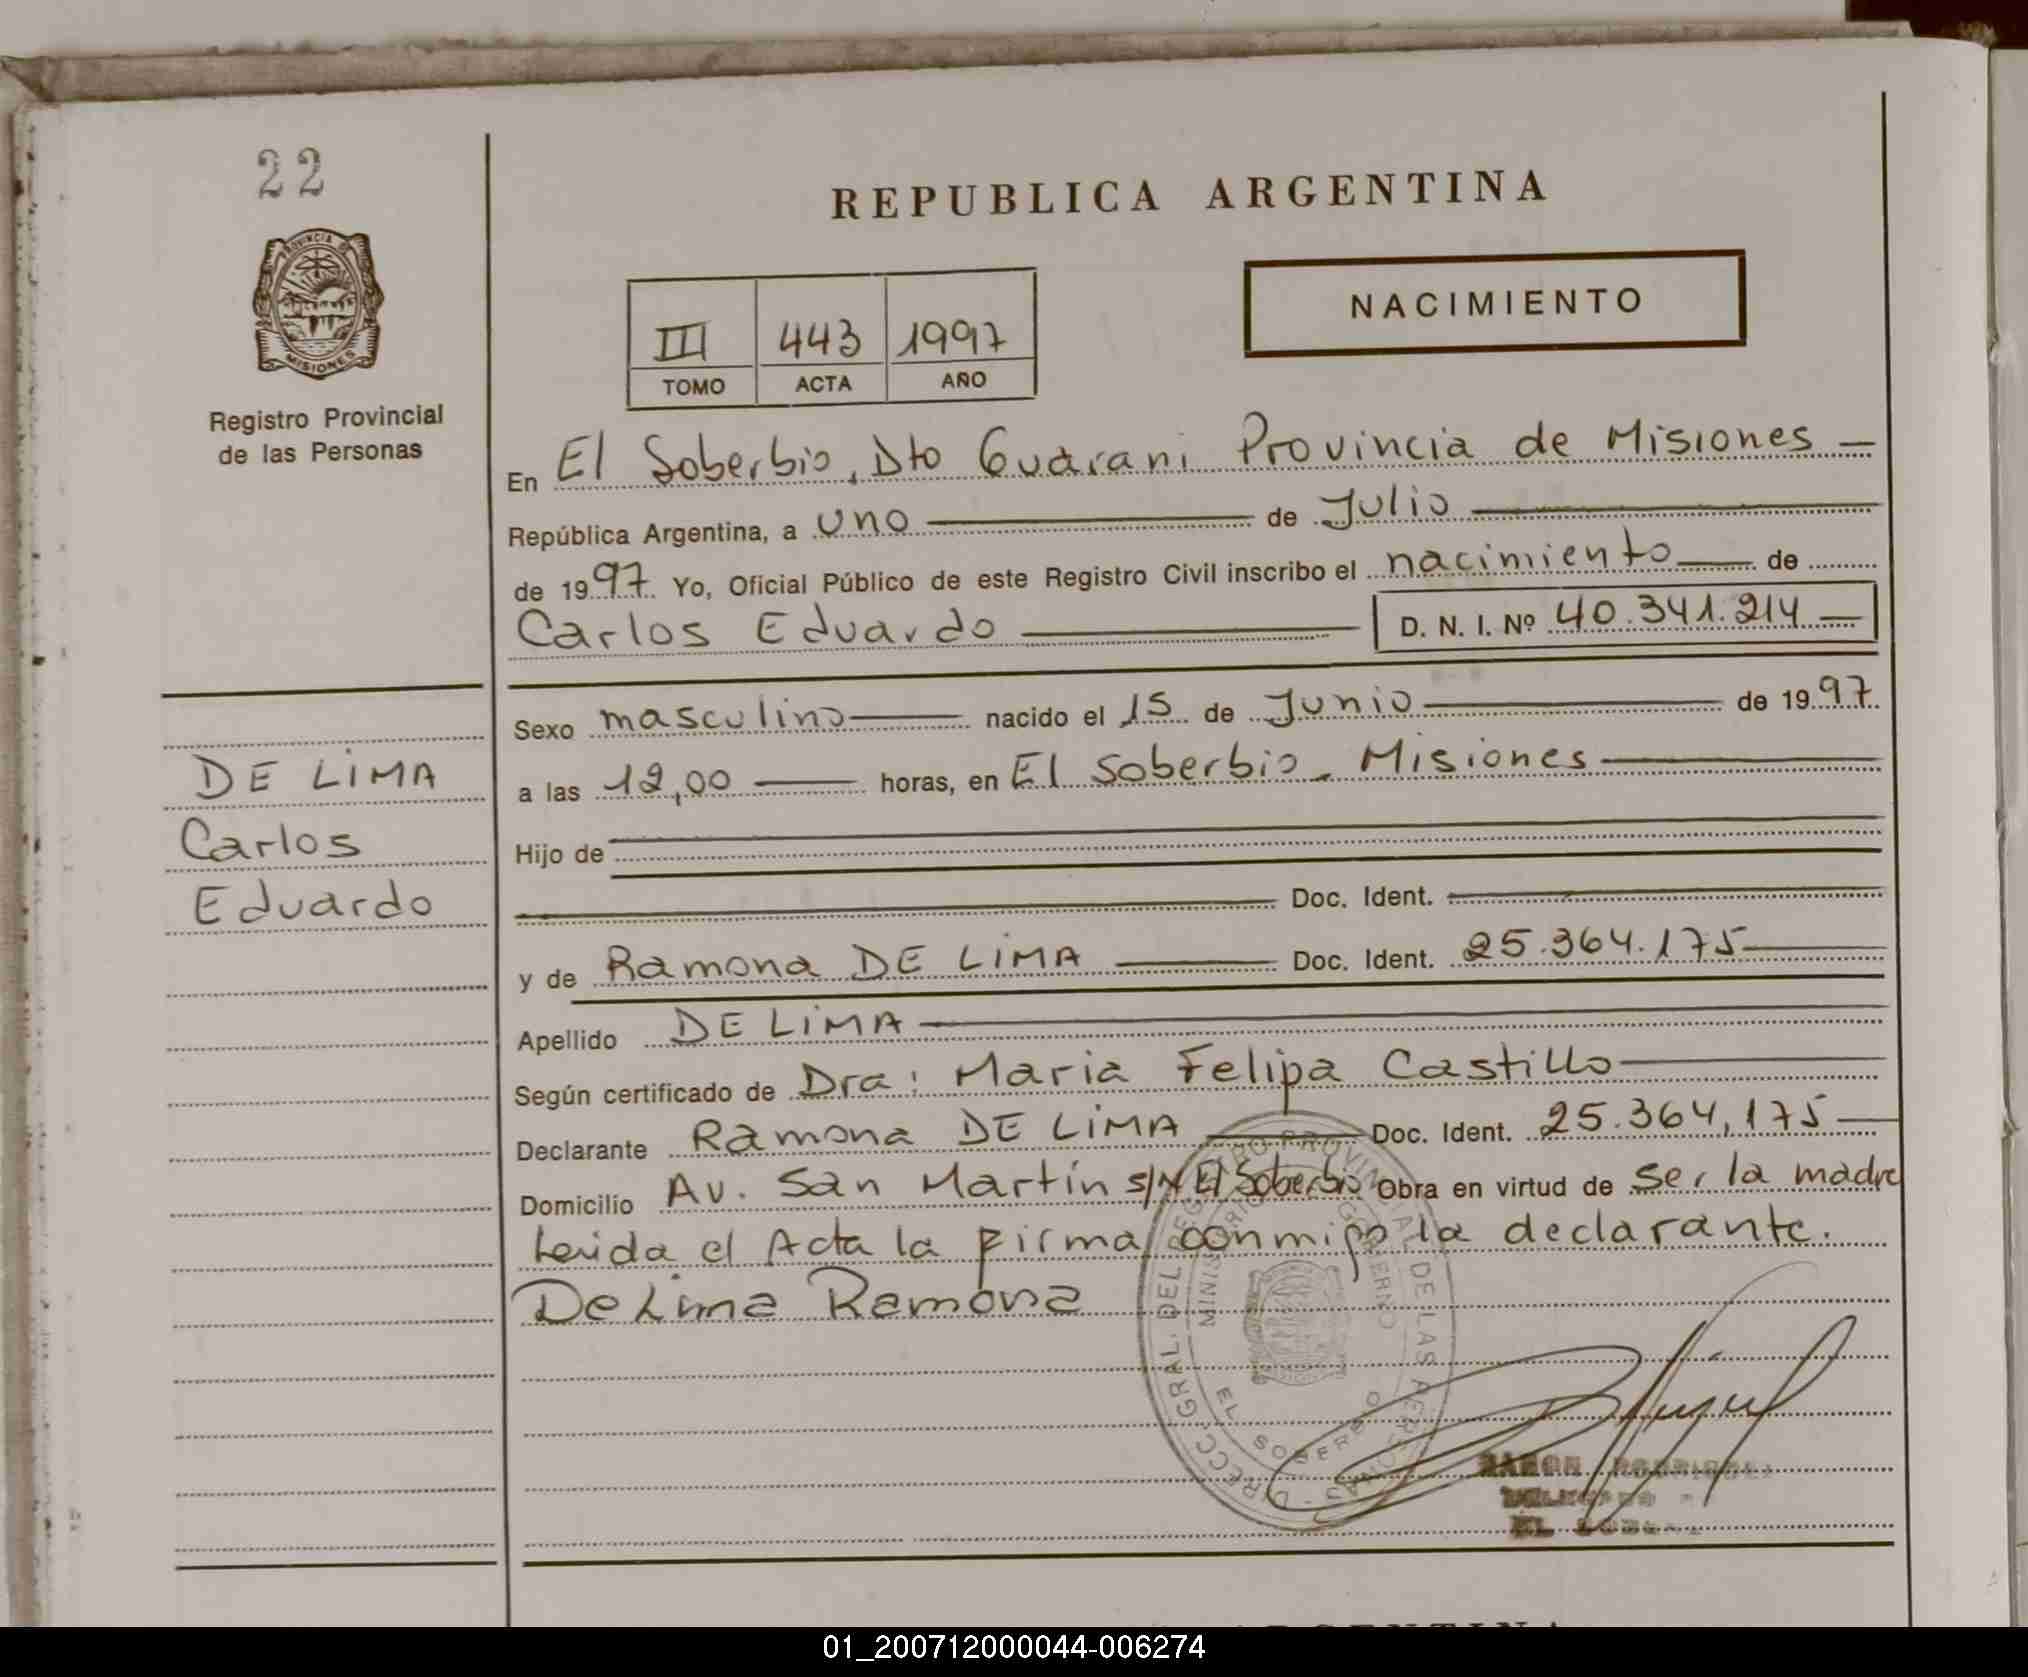 22
PROVINCIA DE
MISIONES
Registro Provincial
de las Personas
DE LIMA
Carlos
Eduardo
REPUBLICA ARGENTINA
NACIMIENTO
III 443 1997
TOMO ACTA AÑO
En El Soberbio, Dto Guarani Provincia de Misiones
República Argentina, a uno de Julio
de 1997 Yo, Oficial Público de este Registro Civil inscribo el nacimiento de
Carlos Eduardo D. N. I. Nº 40.341.214
Sexo masculino nacido el 15 de Junio de 1997
a las 12,00 horas, en El Soberbio - Misiones
Hijo de
Doc. Ident.
y de Ramona DE LIMA Doc. Ident. 25.364.175
Apellido DE LIMA
Según certificado de Dra: Maria Felipa Castillo
Declarante Ramona DE LIMA Doc. Ident. 25.364,175
Domicilio Av. San Martín s/N El Soberbio Obra en virtud de ser la madre
Leida el Acta la firma conmigo la declarante.
De Lima Ramona
DIRECC. GRAL. DEL REGISTRO PROVINCIAL DE LAS PERSONAS
MINISTERIO GOBIERNO
EL SOBERBIO
RAMON RODRIGUEZ
DELEGADO
EL
ARGENTINA
01_200712000044-006274